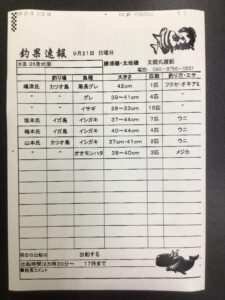 釣果速報 9月21日 日曜日
水温 26度台(前) 勝浦港・太地港 太郎丸渡船
電話: 090-8756-0001
釣り場 魚種 大きさ 匹数 釣り方・エサ
嶋津氏 カツオ島 尾長グレ 42cm 1匹 フカセ・オキアミ
〃 〃 グレ 39〜41cm 4匹 〃
〃 〃 イサギ 28〜33cm 15匹 〃
坂本氏 イガ島 イシガキ 44〜37cm 7匹 ウニ
橋本氏 イガ島 イシガキ 44〜37cm 7匹 ウニ
山本氏 カツオ島 イシガキ 37cm・41cm 2匹 ウニ
〃 〃 オオモンハタ 38〜40cm 3匹 メジカ
明日の出船は 出船する
出船時間は5時30分〜 17時まで
船長コメント